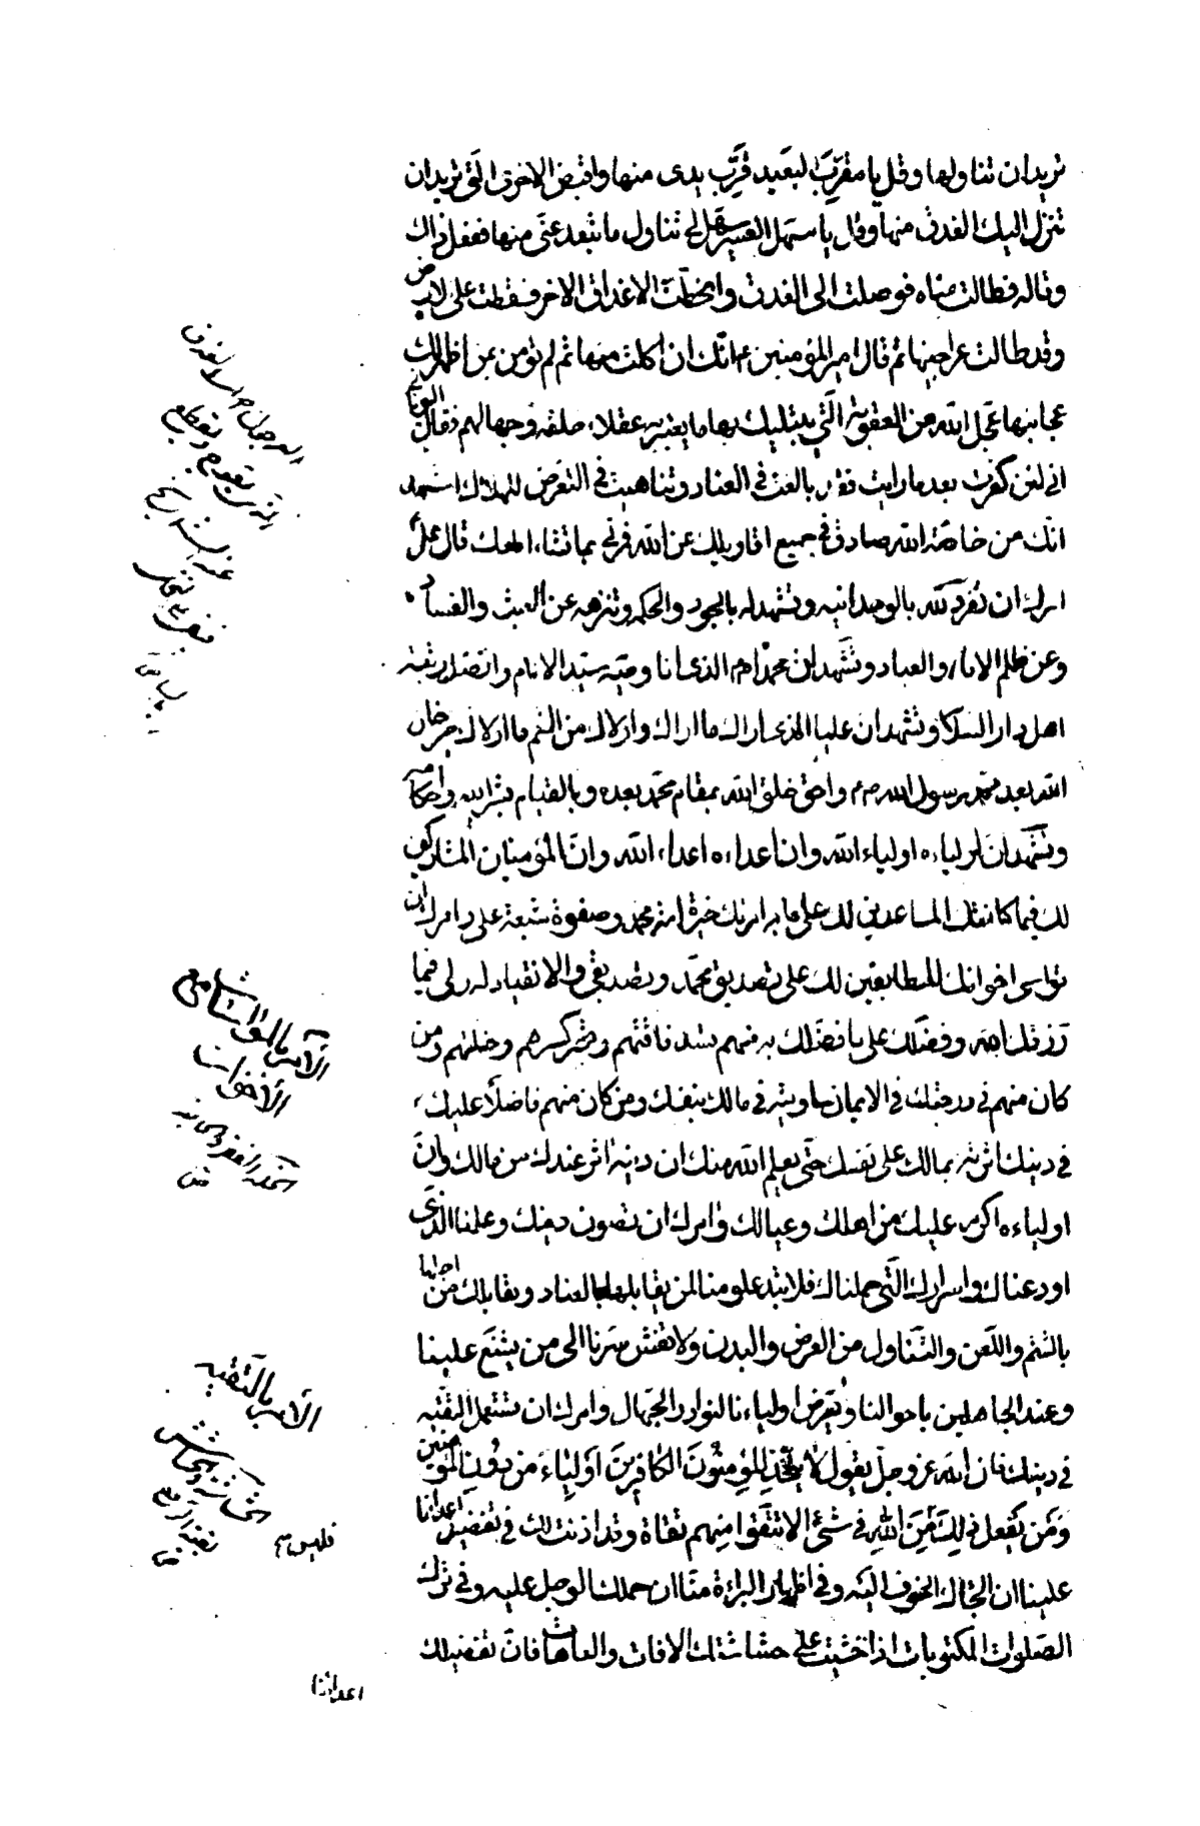 تريد ان تناولها وقل يا مقرّب البعيد قرّب يدى منها واقبض الاخرى التى تريد ان
تنزل اليك العذق منها وقل يا مسهل العسير سهل لى تناول ما تبعد عنى منها ففعل ذاك
وقاله فطالت يمناه فوصلت الى العذق وانحطت الاعذاق الاخر فسقطت على الارض
وقد طالت عراجينها ثم قال امير المؤمنين ع انك ان اكلت منها ثم لم تؤمن بمن اظهر لك
عجائبها عجل الله من العقوبة التى يبتليك بها ما يعتبر به عقلاء خلقه وجهالهم فقال اليونانى
انى لئن كفرت بعد ما رايت فقد بالغت فى العناد وتناهيت فى التعرض للهلاك اشهد
انك من خاصة الله صادق فى جميع اقاويلك عن الله فمرنى بما تشاء اطعك قال على
امرك ان تفرد لله بالوحدانيه وتشهد له بالجود والحكمه وتنزهه عن العبث والفساد
وعن ظلم الاماء والعباد وتشهد ان محمدا ص الذى انا وصيه سيد الانام وافضل رتبة
اهل دار السلام وتشهد ان عليا الذى اراك ما اراك واولاك من النعم ما اولاك خير خلق
الله بعد محمد رسول الله ص واحق خلق الله بمقام محمد بعده وبالقيام بشرايعه واحكامه
وتشهد ان اولياءه اولياء الله وان اعداءه اعداء الله وان المؤمنين المشاركين
لك فيما كلفتك المساعدين لك على ما به امرتك خيرة امة محمد وصفوة شيعة على وامرك ان
تواسى اخوانك المطابقين لك على تصديق محمد وتصديقى والانقياد له ولى فيما
رزقك الله وفضلك على ما فضلك به منهم تسد فاقتهم وتجبر كسرهم وخلتهم ومن
كان منهم فى درجتك فى الايمان ساويته فى مالك بنفسك ومن كان منهم فاضلا عليك
فى دينك اثرته بمالك على نفسك حتى يعلم الله منك ان دينه اثر عندك من مالك وان
اولياءه اكرم عليك من اهلك وعيالك وامرك ان تصون دينك وعلمنا الذى
اودعناك واسرارك التى حملناك فلا تبد علومنا لمن يقابلها بالعناد ويقابلك من اجلها
بالشتم واللعن والتناول من العرض والبدن ولا تفش سرنا الى من يشنع علينا
وعند الجاهلين باحوالنا وتعرض اولياءنا لنوادر الجهال وامرك ان تستعمل التقية
فى دينك فان الله عز وجل يقول لا يَتَّخِذِ المُؤمِنُونَ الكَافِرِينَ اَولِياءَ مِن دُونِ المؤمنين
وَمَن يَفعَل ذلِكَ فَلَيسَ مِنَ اللهِ فِى شَئٍ الا ان تتقوا منهم تقاة وقد اذنت لك فى تفضيل اعدائنا
علينا ان الجاك الخوف اليه وفى اظهار البراءة منا ان حملك الوجل عليه وفى ترك
الصلوات المكتوبات اذا خشيت على حشاشتك الافات والعاهات فان تفضيلك
اعدائنا
الأمر بالمواساة مع
الأخوان
الأمر بالتقيه
فليس